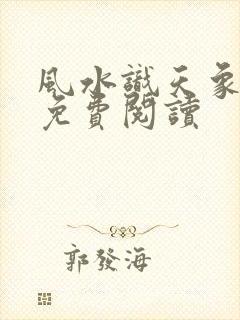 風水識天象
免費閱讀
郭發海